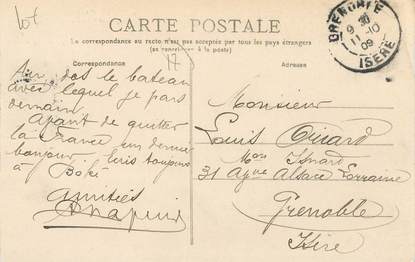 lot
CARTE POSTALE
La correspondance au recto n'est pas acceptée par tous les pays étrangers
(se renseigner à la poste)
Correspondance
Adresse
17
GRENOBLE
9 30
11 -10
09
ISÈRE
Au dos le bateau
avec lequel je pars
demain.
Avant de quitter
la France un dernier
bonjour. suis toujours
à Boké
Amitiés
Monsieur
Louis Girard
Mon Isnard
31 Ague Alsace Lorraine
Grenoble
Isère